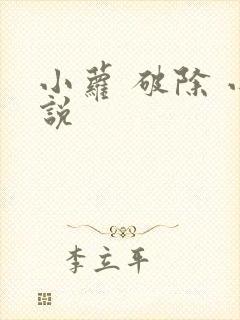 小蘿 破除 小
說
李立平